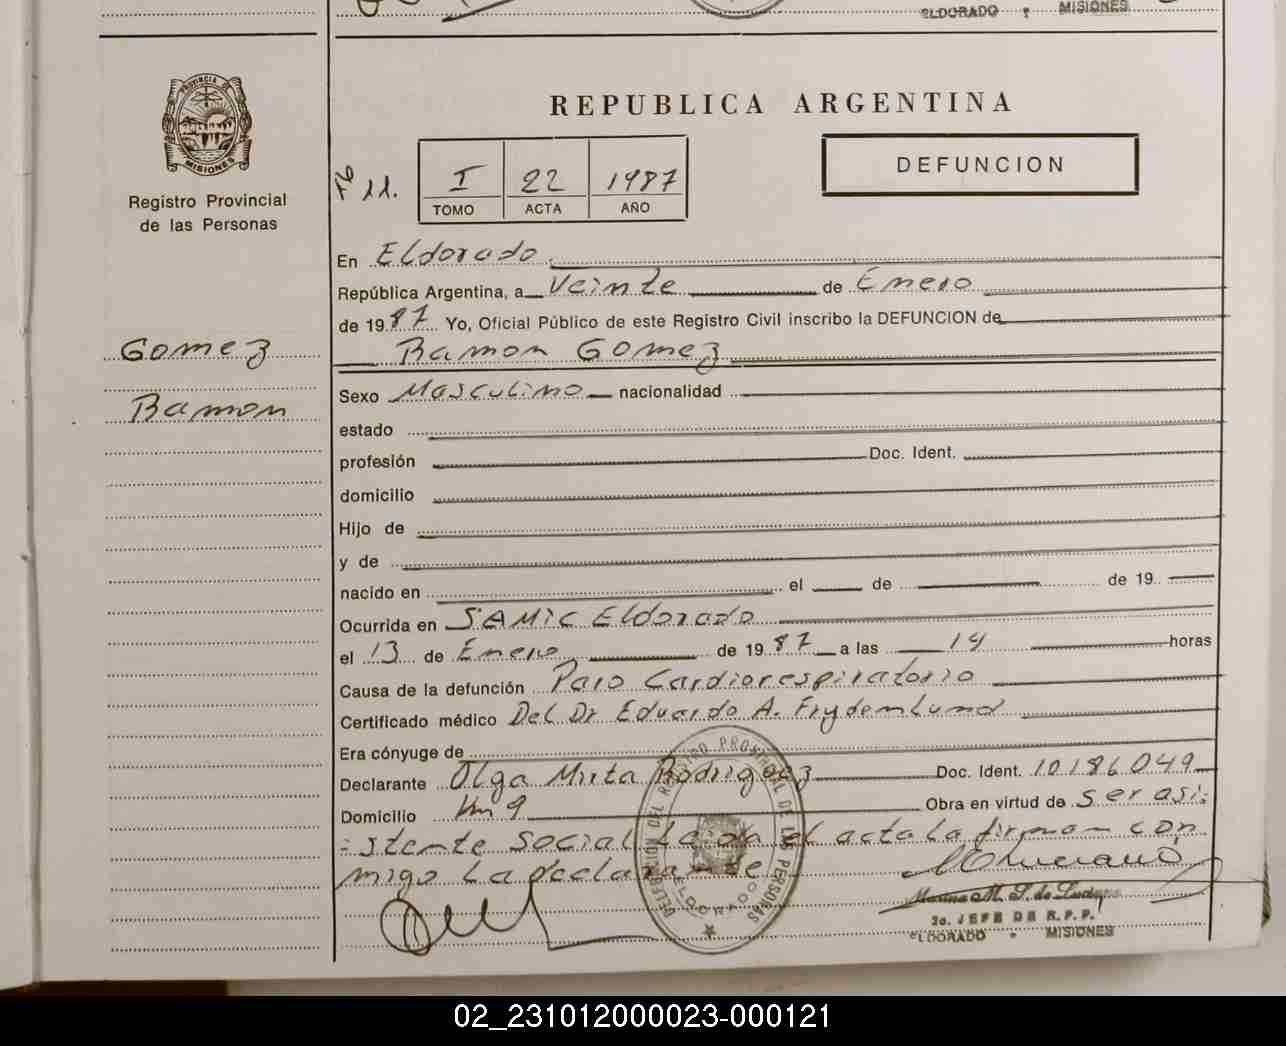 ELDORADO MISIONES
PROVINCIA DE
MISIONES
Registro Provincial
de las Personas
REPUBLICA ARGENTINA
DEFUNCION
Fº 11.
I 22 1987
TOMO ACTA AÑO
En Eldorado
República Argentina, a Veinte de Enero
de 1987 Yo, Oficial Público de este Registro Civil inscribo la DEFUNCION de
Gomez
Ramon Gomez
Ramon
Sexo Masculino nacionalidad
estado
profesión Doc. Ident.
domicilio
Hijo de
y de
nacido en el de de 19
Ocurrida en SAMIC Eldorado
el 13 de Enero de 1987 a las 14 horas
Causa de la defunción Paro Cardiorespiratorio
Certificado médico Del Dr Eduardo A. Frydenlund
Era cónyuge de
Declarante Olga Mirta Rodriguez Doc. Ident. 10186049
Domicilio Km 9 Obra en virtud de ser asi-
-stente Social Leida el acta la firman con
migo La declarante
REGISTRO PROVINCIAL DE LAS PERSONAS
ELDORADO
2a. JEFE DE R.P.P.
ELDORADO MISIONES
02_231012000023-000121